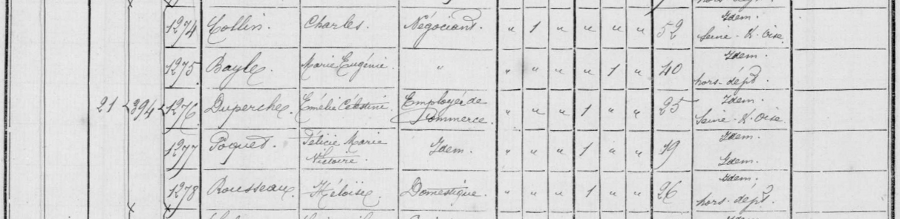 1274 Collin. Charles. Négociant. " 1 " " " " 52 Idem. Seine-&-Oise.
1275 Bayle. Marie Eugénie. " " " " " 1 " 40 Idem. hors-dépt.
21 394 1276 Duperche. Emélie Célestine Employée de Commerce. " " " 1 " " 25 Idem. Seine-&-Oise.
1277 Poquet. Félicie Marie Victoire. Idem. " " " 1 " " 19 Idem. Idem.
1278 Rousseau. Héloïse. Domestique. " " " 1 " " 26 Idem. hors-dépt.